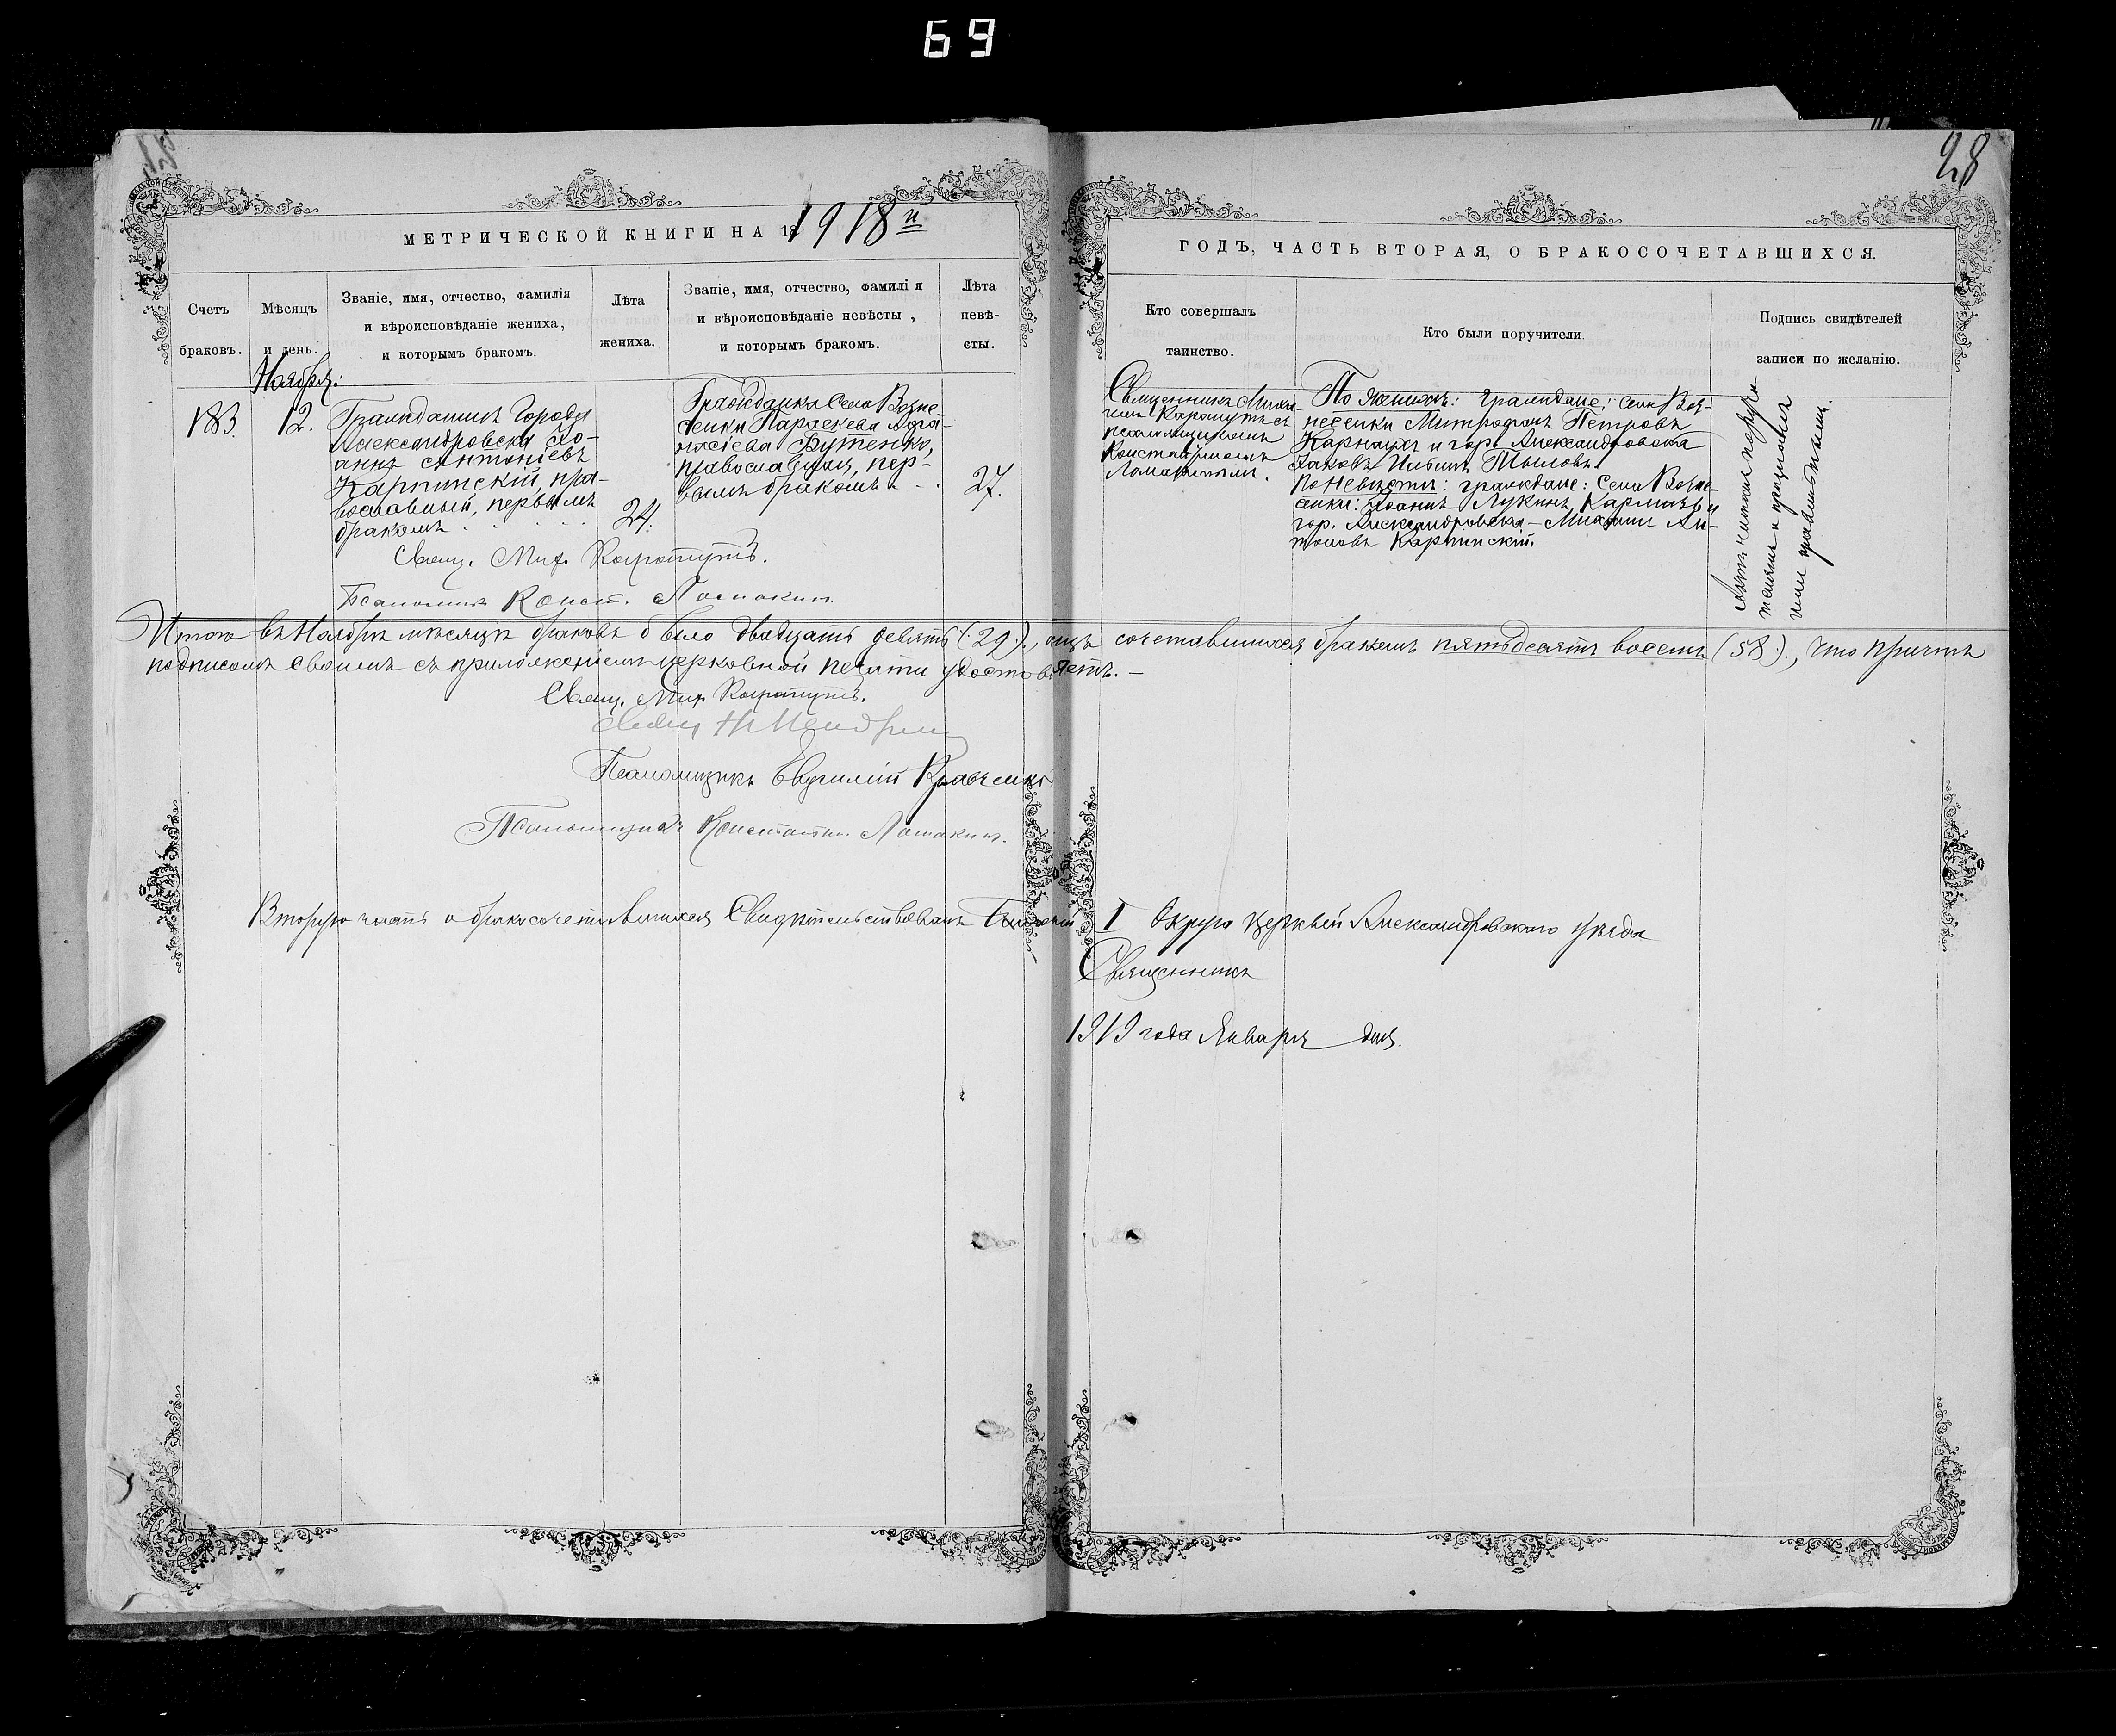 69
28
МЕТРИЧЕСКОЙ КНИГИ НА 1918й
ГОДЪ, ЧАСТЬ ВТОРАЯ, О БРАКОСОЧЕТАВШИХСЯ.
Счетъ браковъ.
Мѣсяцъ и день.
Званіе, имя, отчество, фамилія
и вѣроисповѣданіе жениха,
и которымъ бракомъ.
Лѣта
жениха.
Званіе, имя, отчество, фамилія
и вѣроисповѣданіе невѣсты,
и которымъ бракомъ.
Лѣта
невѣ-
сты.
Кто совершалъ
таинство.
Кто были поручители.
Подпись свидѣтелей
записи по желанію.
Ноября:
183.
12.
Гражданинъ Города
Александровска Іо-
аннъ Антоніевъ
Карпинскій, пра-
вославный, первымъ
бракомъ
24.
Гражданка Села Возне-
сенки Параскева Афа-
насіева Бутенко,
православная, пер-
вымъ бракомъ
27.
Священникъ Миха-
илъ Коропутъ съ
псаломщикомъ
Константиномъ
Ломакинымъ.
По Женихѣ: граждане: села Воз-
несенки Митрофанъ Петровъ
и гор. Александровска
Тыловъ.
по невѣстѣ: граждане: Села Возне-
сенки: Іоаннъ Лукинъ Кармазь и
гор. Александровска – Михаилъ Ан-
тоновъ Карпинскій.
Свящ. Мих. Коропутъ.
Псаломщ. Конст. Ломакин.
Итого въ Ноябрѣ мѣсяцѣ браковъ было двадцать девять (29), лицъ сочетавшихся бракомъ пятьдесятъ восемь (58), что причтъ
подписомъ своимъ съ приложеніемъ церковной печати удостовѣряетъ. –
Свящ. Мих. Коропутъ.
Свящ
Псаломщикъ Кравченко
Псаломщикъ Константин Ломакин.
Вторую часть о бракосочетавшихся Свидѣтельствовалъ Благочин I Округа церквей Александровскаго уѣзда
Священникъ
1919 года Января дня.